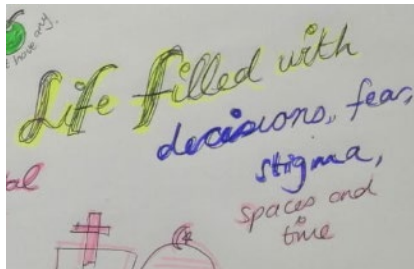 have any.
Life filled with
decisions, fear,
stigma,
spaces and
time